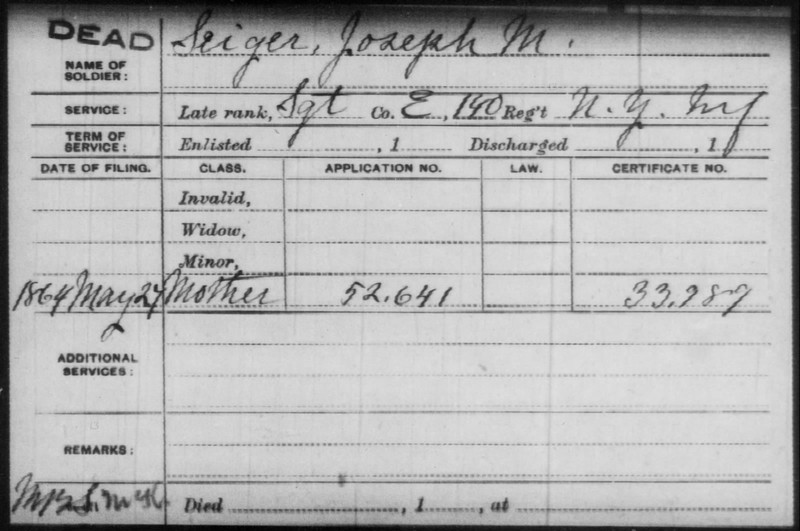 DEAD Seiger, Joseph M.
NAME OF SOLDIER:
SERVICE: Late rank, Sgt Co. E, 140 Reg't N. Y. Inf
TERM OF SERVICE: Enlisted , 1 Discharged , 1
DATE OF FILING. CLASS. APPLICATION NO. LAW. CERTIFICATE NO.
Invalid,
Widow,
Minor,
1864 May 27 Mother 52.641 33.987
ADDITIONAL SERVICES:
REMARKS:
Died , 1 , at